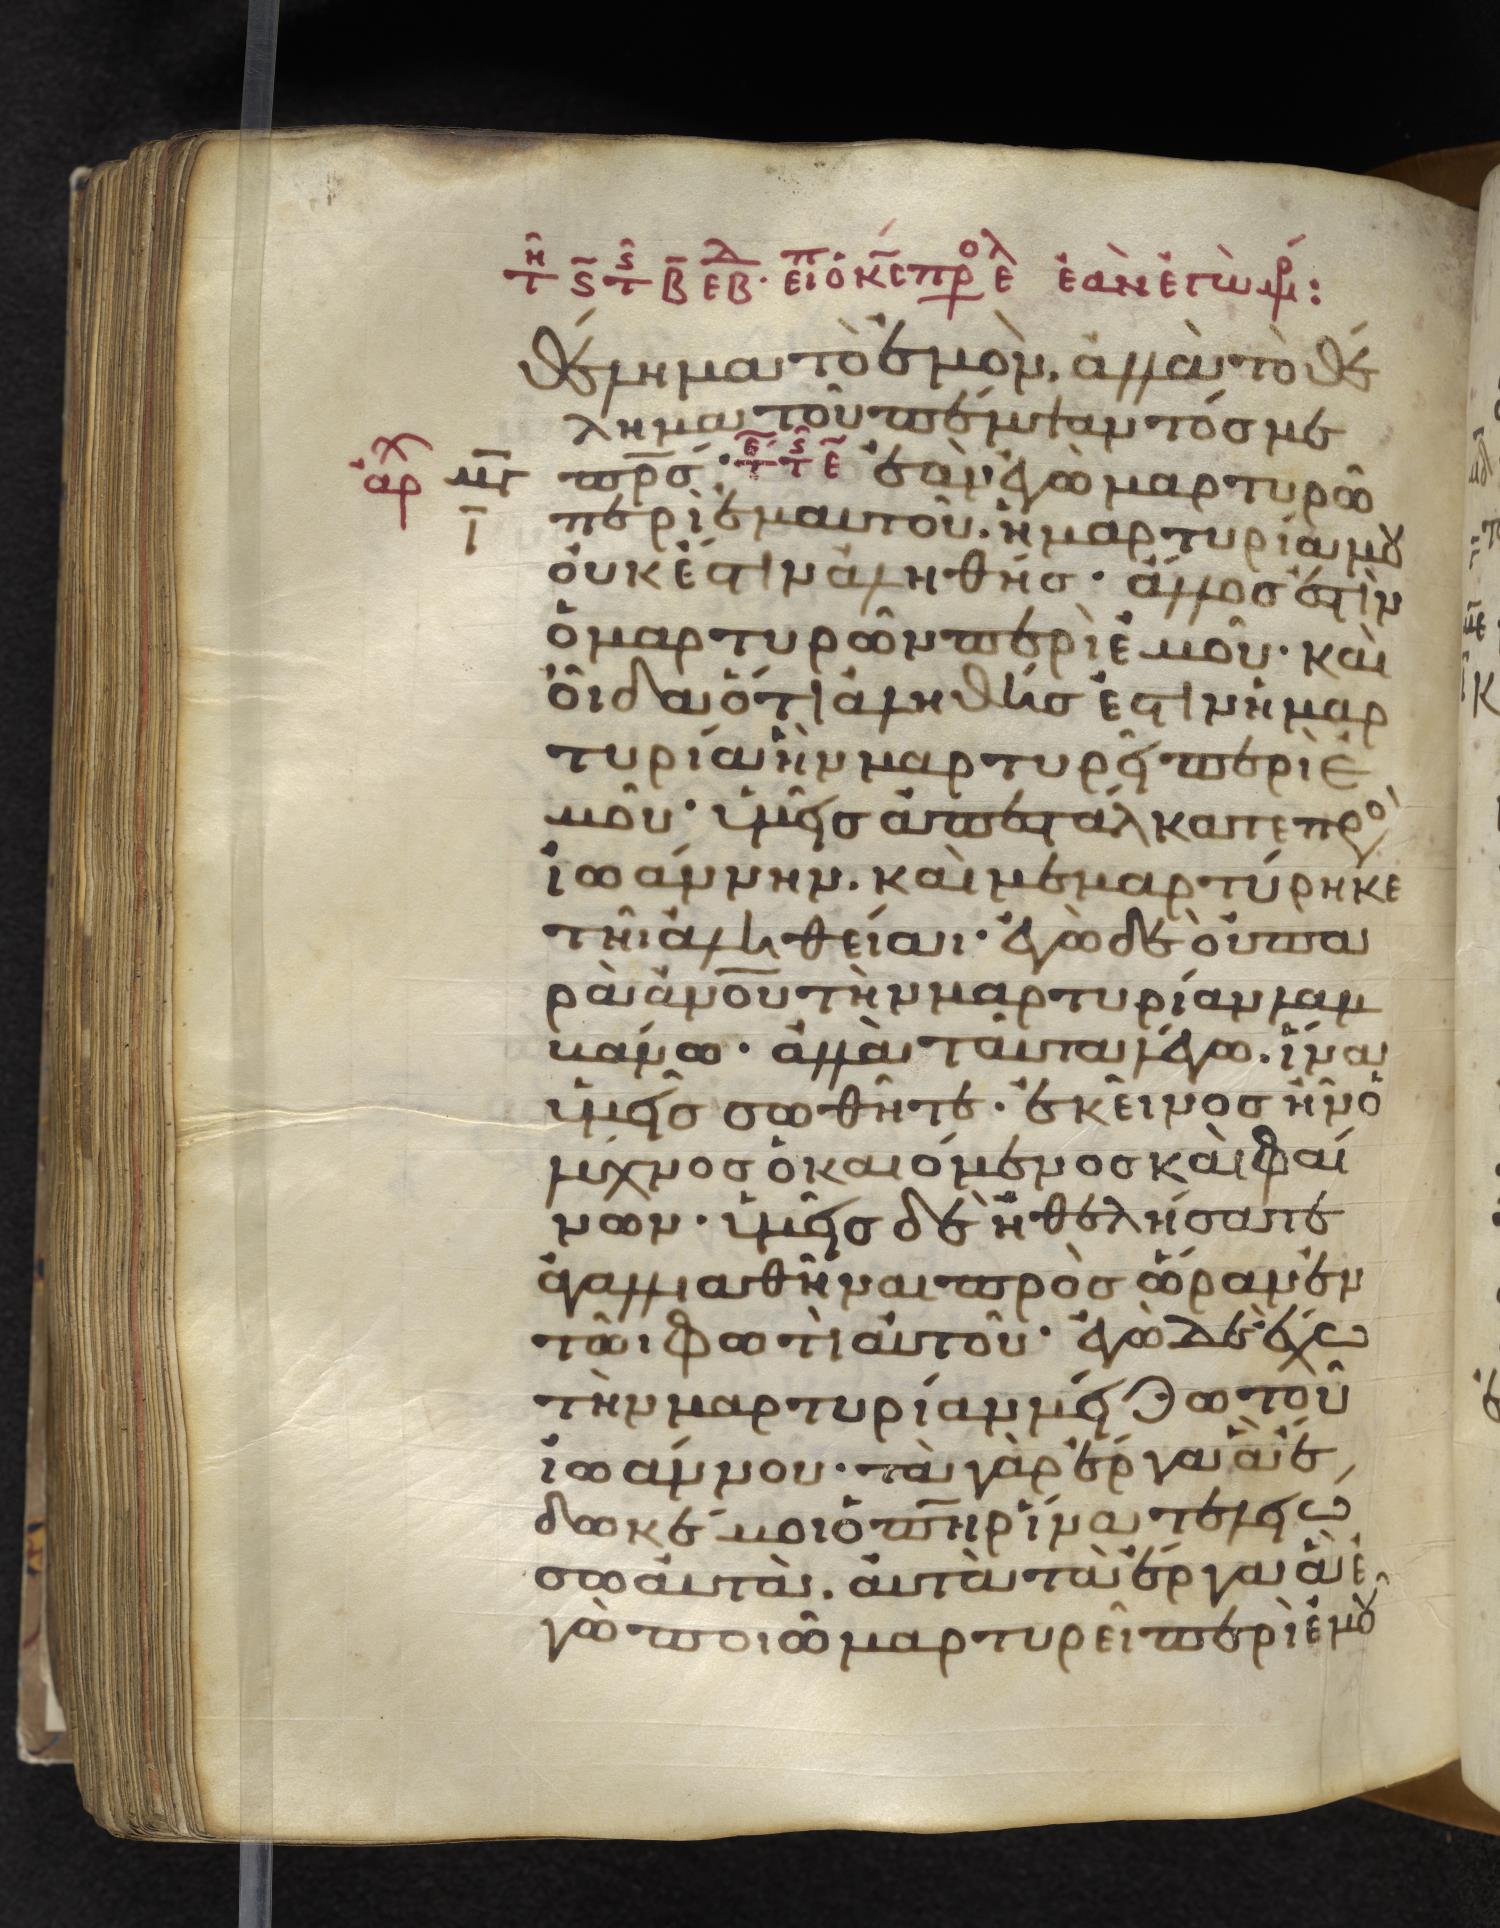 θέλημα τὸ ἐμὸν. ἀλλὰ τὸ θέ
λημα τοῦ πέμψαντός με
πρ̅ς. ἐὰν ἐγὼ μαρτυρῶ
περὶ ἐμαυτοῦ. ἡ μαρτυρία μου
οὐκ ἔστιν ἀληθής· ἄλλος ἐστὶν
ὁ μαρτυρῶν περὶ ἐμοῦ· καὶ
οἶδα ὅτι ἀληθής ἐστιν ἡ μαρ
τυρία ἣν μαρτυρεῖ περὶ ἐ
μοῦ· ὑμεῖς ἀπεστάλκατε πρὸ
ἰωάννην. καὶ μεμαρτύρηκε
τῆι ἀληθείαι· ἐγὼ δὲ οὐ πα
ρὰ ἀν̅ο̅υ̅ τὴν μαρτυρίαν λαμ
βάνω· ἀλλὰ ταῦτα λέγω. ἵνα
ὑμεῖς σωθῆτε· ἐκεῖνος ἦν ὁ
λύχνος ὁ καιόμενος καὶ φαί
νων· ὑμεῖς δὲ ἠθελήσατε
ἀγαλλιαθῆναι πρὸς ὥραν ἐν
τῶι φωτὶ αὐτοῦ· ἐγὼ δὲ ἔχω
τὴν μαρτυρίαν μείζω τοῦ
ἰωάννου· τὰ γὰρ ἔργα ἃ ἔ
δωκέ μοι ὁ π̅η̅ρ ἵνα τελειώ
σω αὐτὰ. αὐτὰ τὰ ἔργα ἃ ἐ
γὼ ποιῶ μαρτυρεῖ περὶ ἐμοῦ